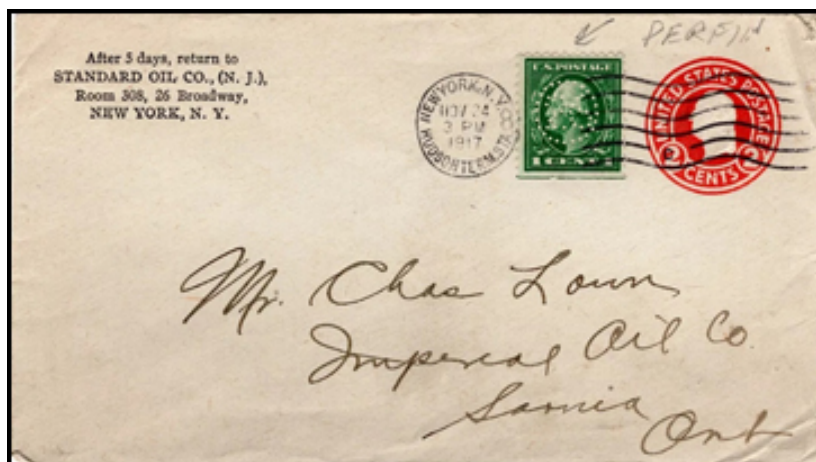 PERFIN
After 5 days, return to
STANDARD OIL CO., (N. J.),
Room 308, 26 Broadway,
NEW YORK, N. Y.
NEW YORK, N.Y.
NOV 24
3 PM
1917
HUDSON TERM. STA.
U.S. POSTAGE
1 CENT 1
UNITED STATES POSTAGE
2 CENTS 2
Mr. Chas Lown
Imperial Oil Co.
Sarnia
Ont